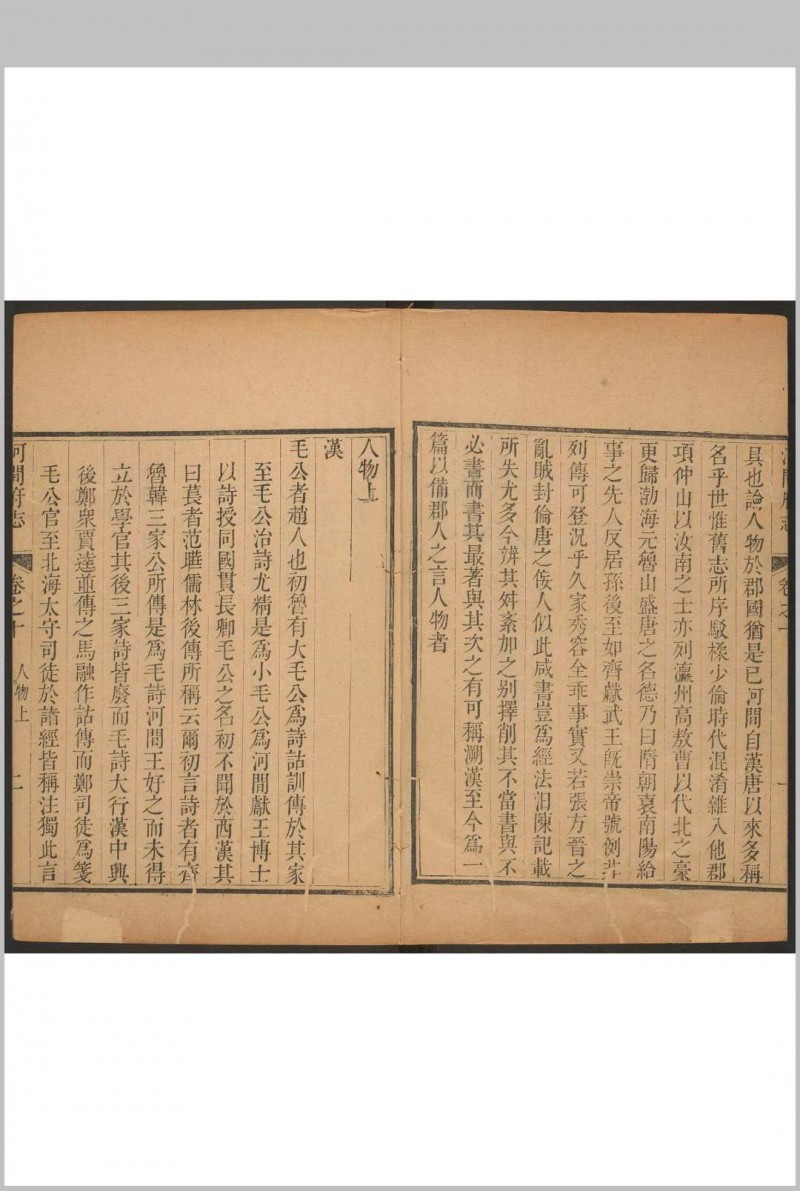 具也論人物於郡國猶是已河間自漢唐以來多稱
名乎世惟舊志所序駁樣少倫時代混淆雜入他郡
項仲山以汝南之士亦列瀛州高敖曹以代北之豪
更歸渤海元魯山盛唐之名德乃曰隋朝袁南陽給
事之先人反居孫後至如齊獻武王旣崇帝號例非
列傳可登況乎久家秀容全乖事實又若張方晉之
亂賊封倫唐之佞人似此咸書豈爲經法汨陳記載
所失尤多今辨其舛紊加之别擇削其不當書與不
必書而書其最著與其次之有可稱溯漢至今爲一
篇以備郡人之言人物者
人物上
漢
毛公者趙人也初魯有大毛公爲詩詁訓傳於其家
至毛公治詩尤精是爲小毛公爲河間獻王博士
以詩授同國貫長卿毛公之名初不聞於西漢其
曰萇者范曄儒林後傳所稱云爾初言詩者有齊
魯韓三家公所傳是爲毛詩河間王好之而未得
立於學官其後三家詩皆廢而毛詩大行漢中興
後鄭衆賈逵並傳之馬融作詁傳而鄭司徒爲箋
毛公官至北海太守司徒於諸經皆稱注獨此言
河間府志 卷之十 人物上 二